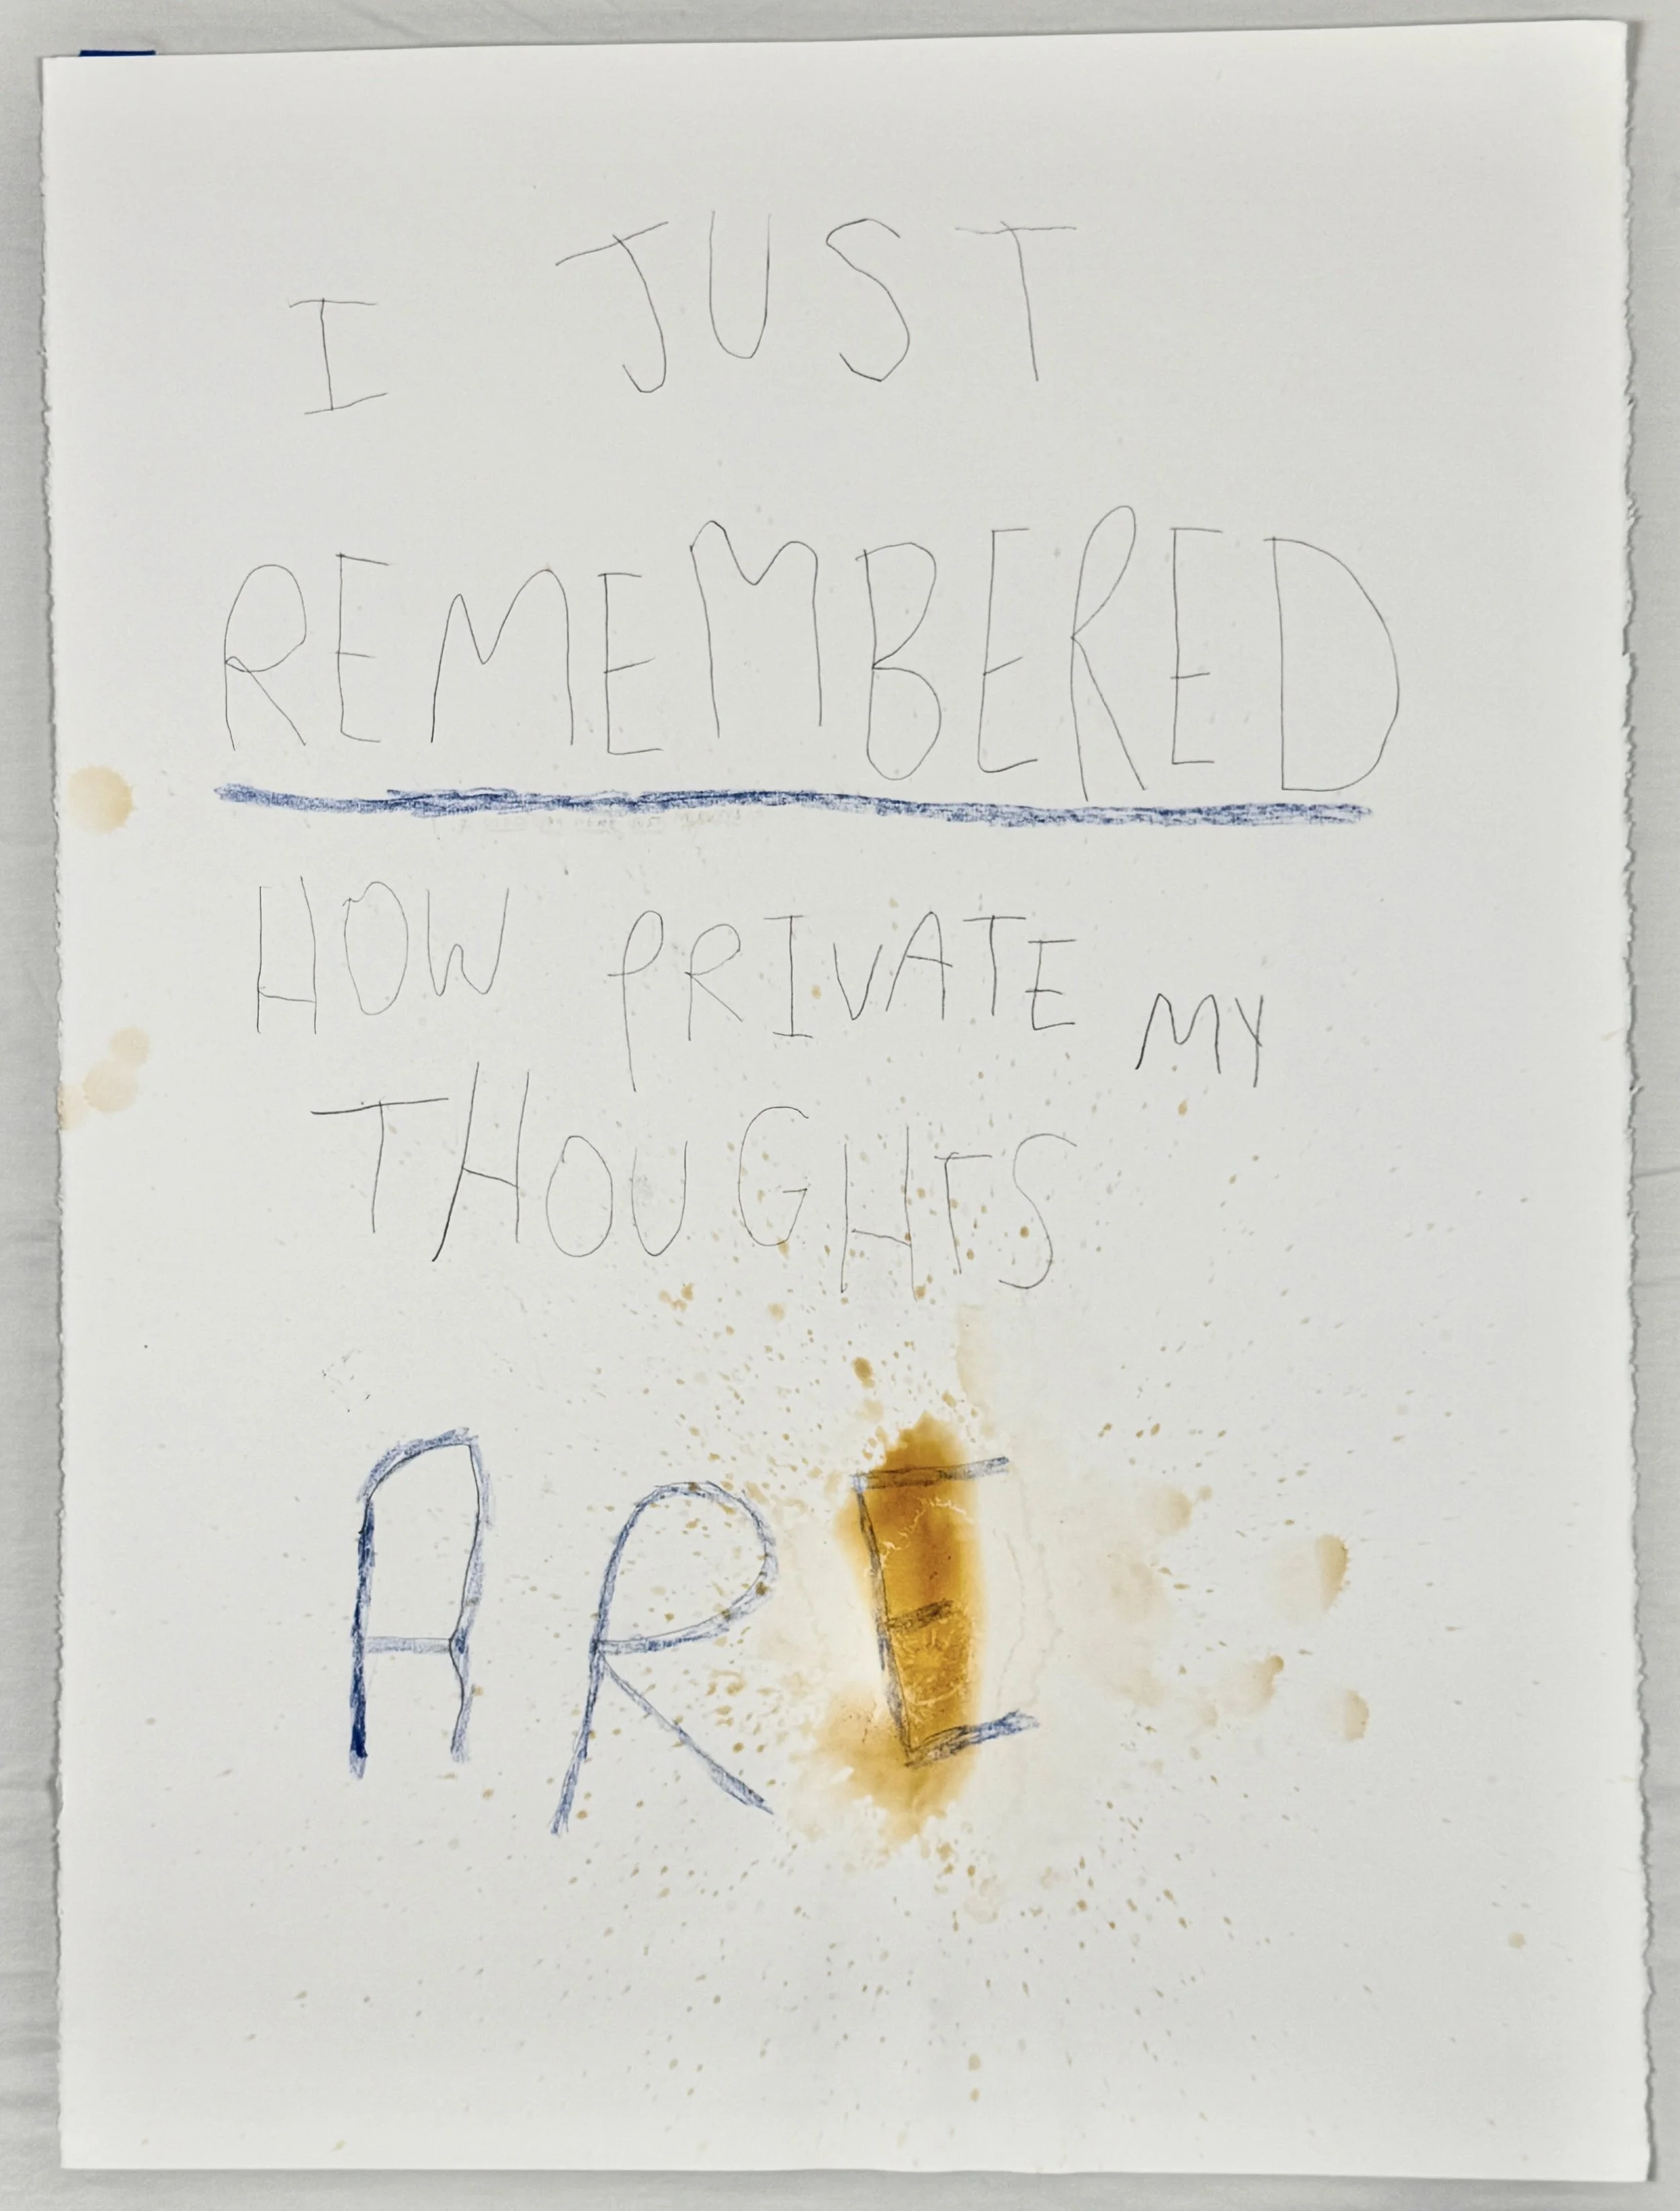 I JUST
REMEMBERED
HOW PRIVATE MY
THOUGHTS
ARE